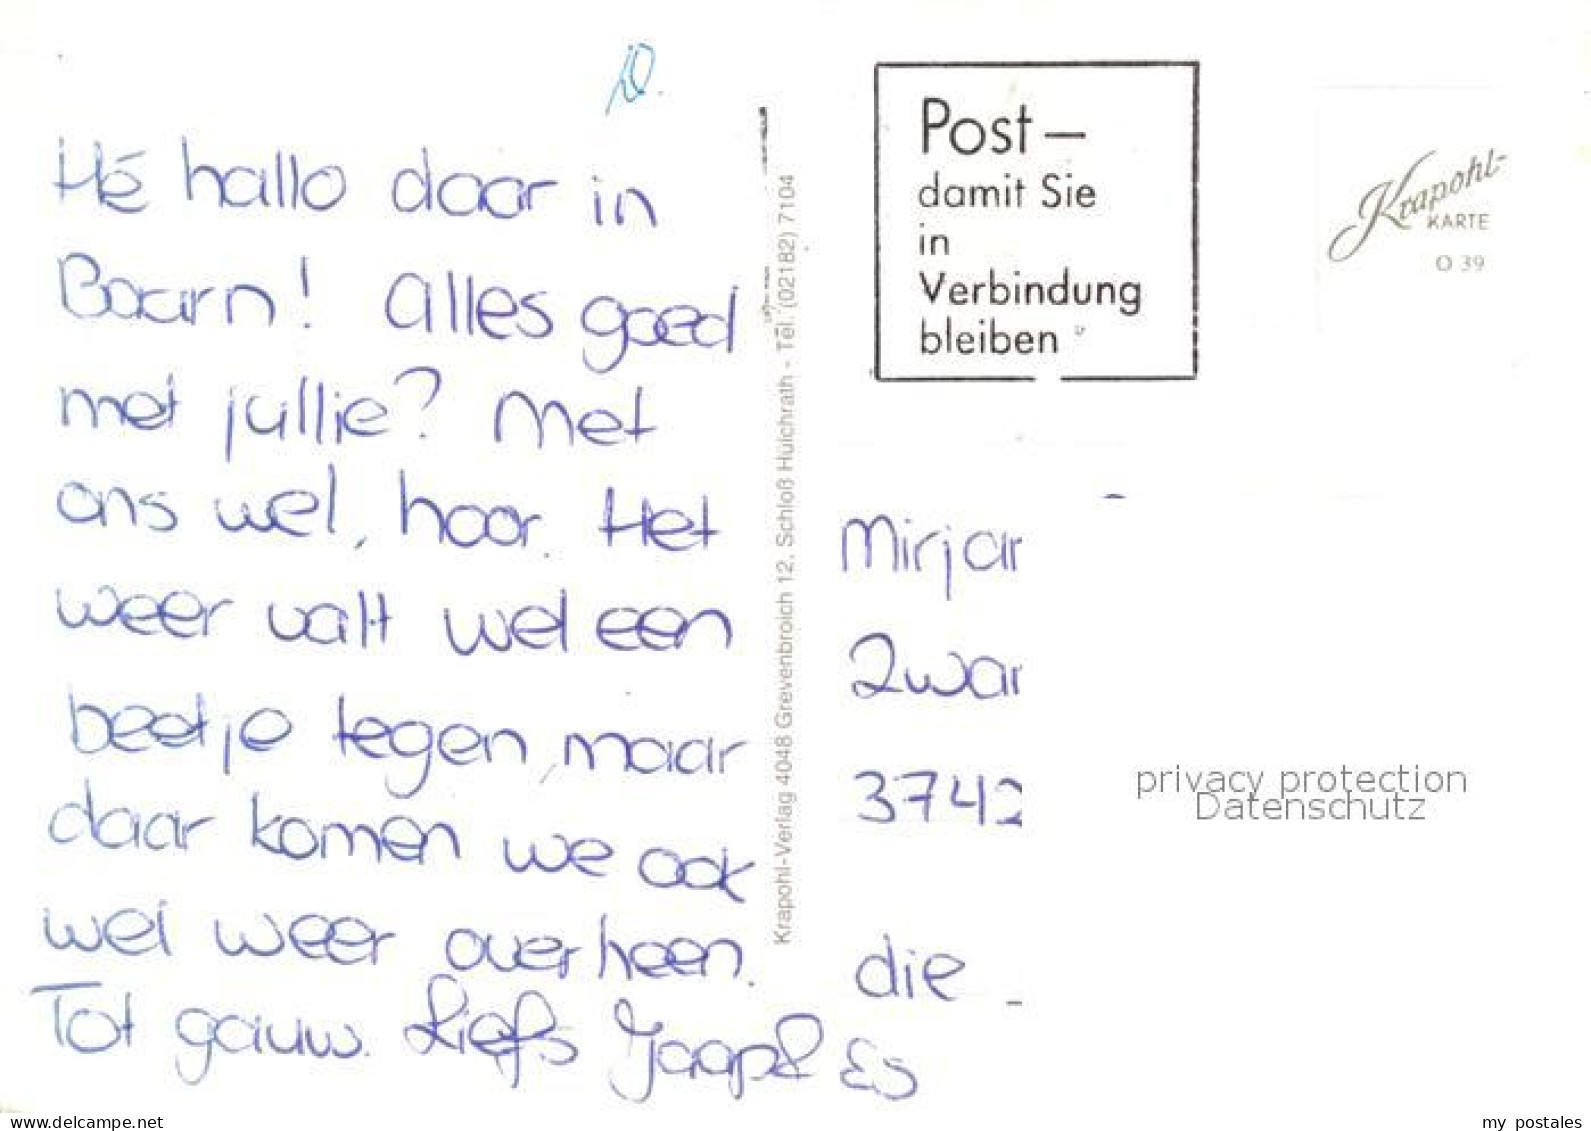 Hé hallo daar in
Baarn! Alles goed
met jullie? Met
ons wel, hoor. Het
weer valt wel een
beetje tegen, maar
daar komen we ook
wel weer overheen.
Tot gauw. Liefs Jaap & Es
Krapohl-Verlag 4048 Grevenbroich 12, Schloß Hülchrath - Tel. (02182) 7104
Post –
damit Sie
in
Verbindung
bleiben
Krapohl-
KARTE
O 39
Mirjar
Zwar
3742
die
privacy protection
Datenschutz
www.delcampe.net
my postales